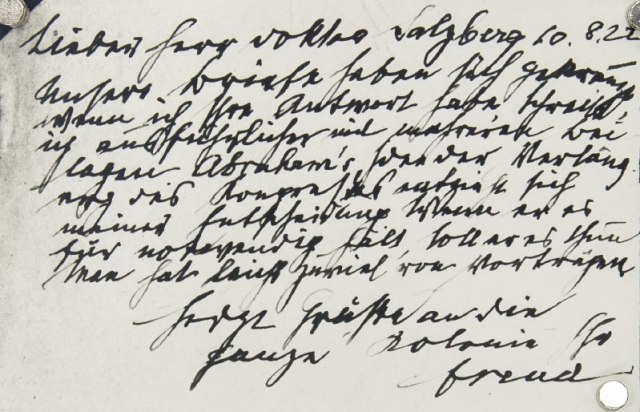 Lieber Herr Doktor Salzberg 10.8.22
Unsere Briefe haben sich gekreuzt
Wenn ich Ihre Antwort habe schreibe
ich ausführlicher mit mehreren Bei
lagen Abraham's Idee der Verläng
erg des Kongresses entzieht sich
meiner Entscheidung Wenn er es
für notwendig hält soll er es thun
Man hat leicht zuviel von Vorträgen
Herzl Grüße an die
ganze Kolonie Ihr
Freud